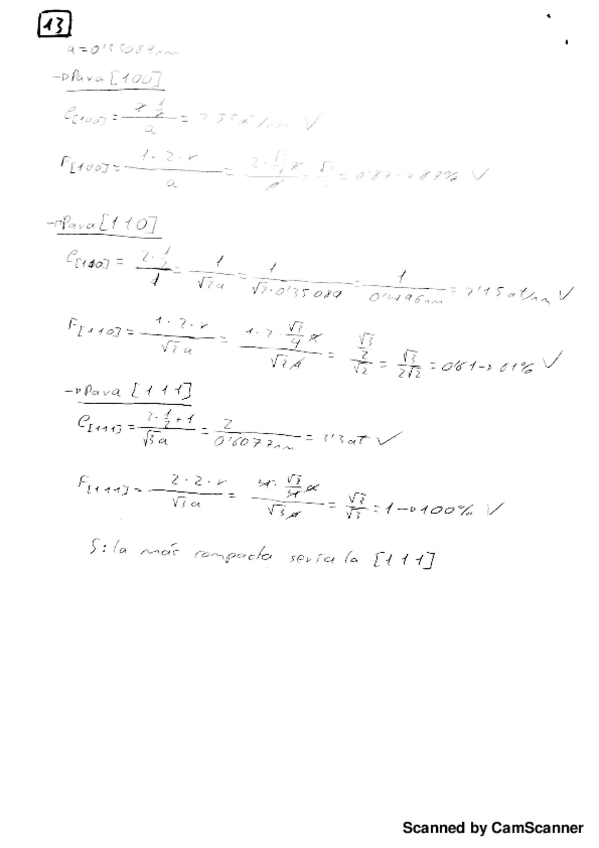 13
a = 0'35089nm
→ Para [100]
ρ[100] = 2·1/2 / a = at/nm ✓
F[100] = 1·2·r / a = 2·√3/4 a / a = √3/2 = 0'87 → 87% ✓
→ Para [110]
ρ[110] = 2·1/2 / 1 = 1/√2a = 1/√2·0'35089 = 1/0'496nm = 2'15at/nm ✓
F[110] = 1·2·r / √2a = 1·2 √3/4 a / √2a = √3/2 / √2 = √3/2√2 = 0'61 → 61% ✓
→ Para [111]
ρ[111] = 2·1/2+1 / √3a = 2/0'6077nm = 3'3at ✓
F[111] = 2·2·r / √3a = 4·√3/4 a / √3a = √3/√3 = 1 → 100% ✓
S: la más compacta sería la [111]
Scanned by CamScanner